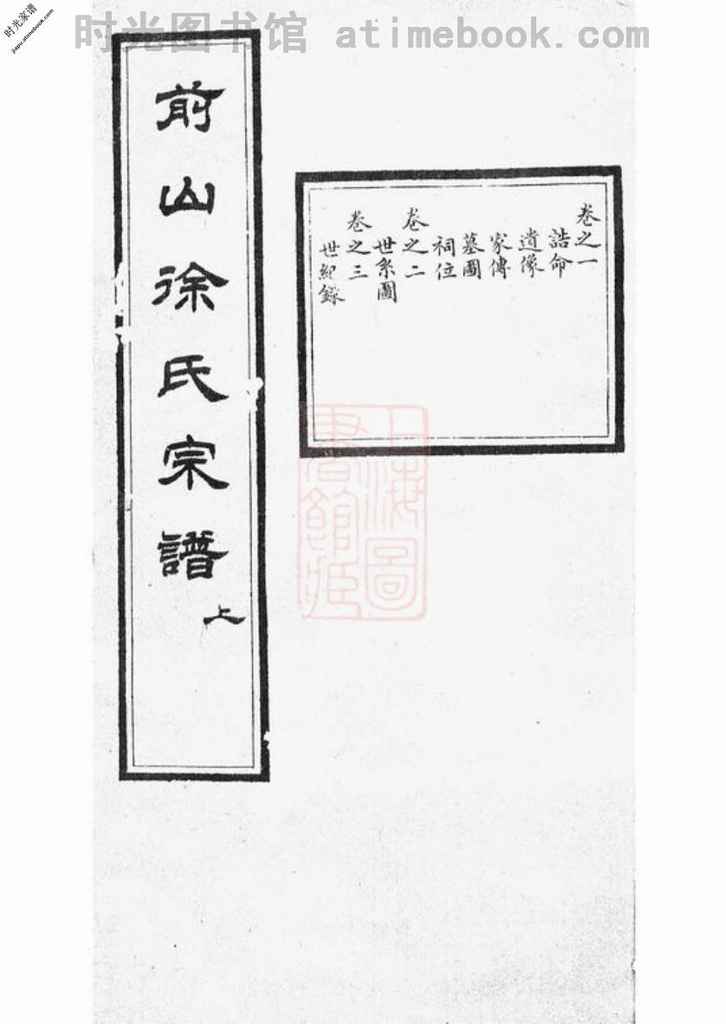 时光图书馆 atimebook.com
时光家谱
jiapu.atimebook.com
前山徐氏宗譜
上
卷之一
誥命
遺像
家傳
墓圖
祠位
卷之二
世系圖
卷之三
世紀錄
上海圖
書館藏